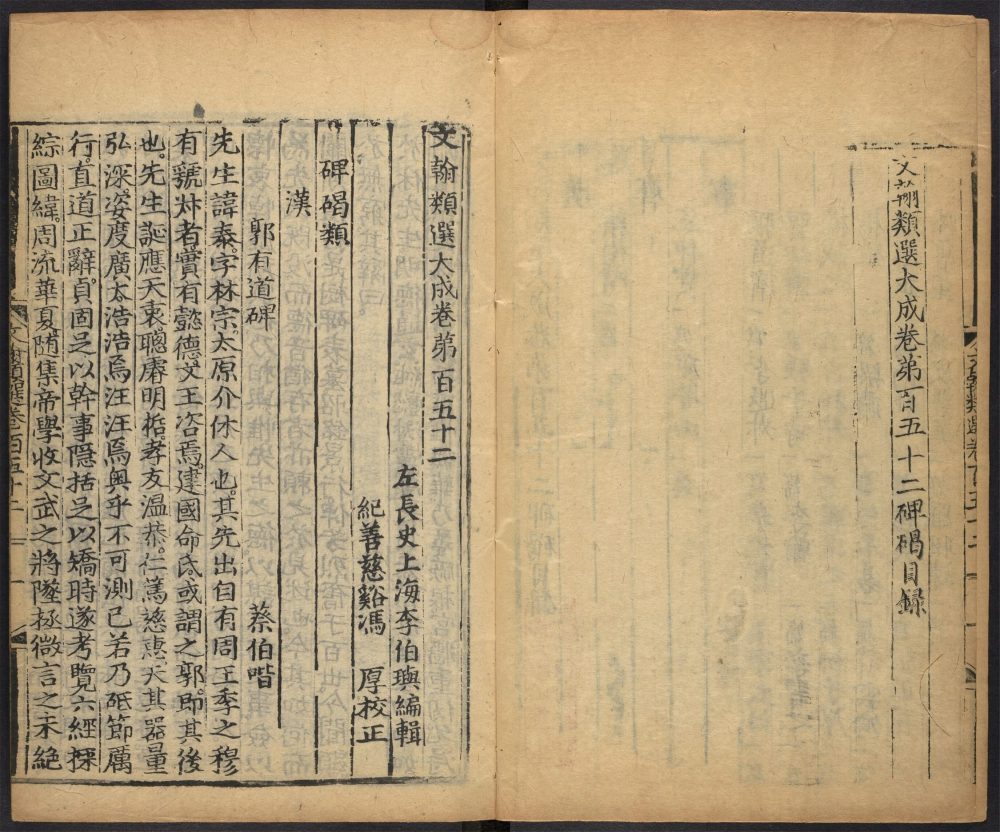 文翰類選大成卷第百五十二碑碣目錄
文翰類選大成卷第百五十二
左長史上海李伯璵編輯
紀善慈谿馮　厚校正
碑碣類
漢
郭有道碑　蔡伯喈
先生諱泰。字林宗。太原介休人也。其先出自有周王季之穆
有虢叔者。實有懿德。文王咨焉。建國命氏。或謂之郭。即其後
也。先生誕應天衷。聰睿明哲。孝友溫恭。仁篤慈惠。夫其器量
弘深。姿度廣大。浩浩焉汪汪焉。奧乎不可測已。若乃砥節厲
行。直道正辭。貞固足以幹事。隱括足以矯時。遂考覽六經。探
綜圖緯。周流華夏。隨集帝學。收文武之將墜。拯微言之未絕